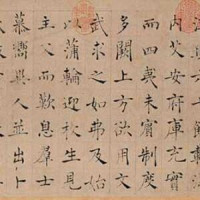 內艾安府庫充實
而四夷未賓制度
多闕上方欲用文
武求之如弗及始
以蒲輪迎枚生見
主父而歎息羣士
慕嚮異人並出卜